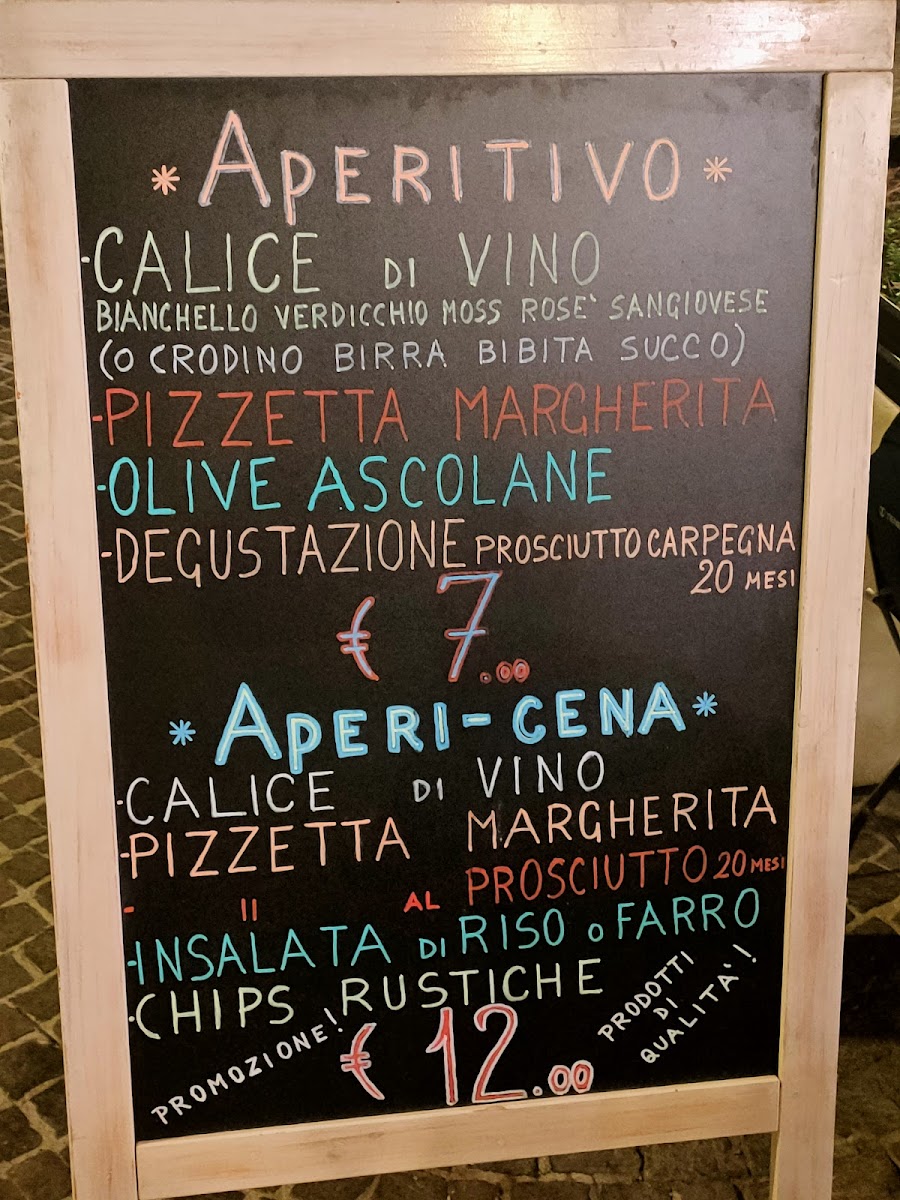 * APERITIVO *
-CALICE DI VINO
BIANCHELLO VERDICCHIO MOSS ROSE` SANGIOVESE
(O CRODINO BIRRA BIBITA SUCCO)
-PIZZETTA MARGHERITA
-OLIVE ASCOLANE
-DEGUSTAZIONE PROSCIUTTO CARPEGNA
20 MESI
€ 7.00
* APERI-CENA *
-CALICE DI VINO
-PIZZETTA MARGHERITA
- " AL PROSCIUTTO 20 MESI
-INSALATA DI RISO O FARRO
-CHIPS RUSTICHE
PROMOZIONE!
€ 12.00
PRODOTTI
DI
QUALITA`!